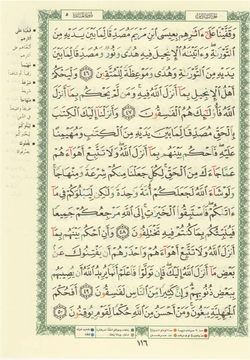 وَقَفَّيْنَا عَلَىٰ ءَاثَارِهِم بِعِيسَى ابْنِ مَرْيَمَ مُصَدِّقًا لِّمَا بَيْنَ يَدَيْهِ مِنَ
التَّوْرَاةِ وَءَاتَيْنَاهُ الْإِنجِيلَ فِيهِ هُدًى وَنُورٌ وَمُصَدِّقًا لِّمَا بَيْنَ
يَدَيْهِ مِنَ التَّوْرَاةِ وَهُدًى وَمَوْعِظَةً لِّلْمُتَّقِينَ ٤٦ وَلْيَحْكُمْ
أَهْلُ الْإِنجِيلِ بِمَا أَنزَلَ اللَّهُ فِيهِ وَمَن لَّمْ يَحْكُم بِمَا أَنزَلَ
اللَّهُ فَأُولَٰئِكَ هُمُ الْفَاسِقُونَ ٤٧ وَأَنزَلْنَا إِلَيْكَ الْكِتَابَ
بِالْحَقِّ مُصَدِّقًا لِّمَا بَيْنَ يَدَيْهِ مِنَ الْكِتَابِ وَمُهَيْمِنًا
عَلَيْهِ فَاحْكُم بَيْنَهُم بِمَا أَنزَلَ اللَّهُ وَلَا تَتَّبِعْ أَهْوَاءَهُمْ
عَمَّا جَاءَكَ مِنَ الْحَقِّ لِكُلٍّ جَعَلْنَا مِنكُمْ شِرْعَةً وَمِنْهَاجًا
وَلَوْ شَاءَ اللَّهُ لَجَعَلَكُمْ أُمَّةً وَاحِدَةً وَلَٰكِن لِّيَبْلُوَكُمْ فِي مَا
ءَاتَاكُمْ فَاسْتَبِقُوا الْخَيْرَاتِ إِلَى اللَّهِ مَرْجِعُكُمْ جَمِيعًا
فَيُنَبِّئُكُم بِمَا كُنتُمْ فِيهِ تَخْتَلِفُونَ ٤٨ وَأَنِ احْكُم بَيْنَهُم بِمَا
أَنزَلَ اللَّهُ وَلَا تَتَّبِعْ أَهْوَاءَهُمْ وَاحْذَرْهُمْ أَن يَفْتِنُوكَ عَن
بَعْضِ مَا أَنزَلَ اللَّهُ إِلَيْكَ فَإِن تَوَلَّوْا فَاعْلَمْ أَنَّمَا يُرِيدُ اللَّهُ أَن يُصِيبَهُم
بِبَعْضِ ذُنُوبِهِمْ وَإِنَّ كَثِيرًا مِّنَ النَّاسِ لَفَاسِقُونَ ٤٩ أَفَحُكْمَ
الْجَاهِلِيَّةِ يَبْغُونَ وَمَنْ أَحْسَنُ مِنَ اللَّهِ حُكْمًا لِّقَوْمٍ يُوقِنُونَ ٥٠
١١٦